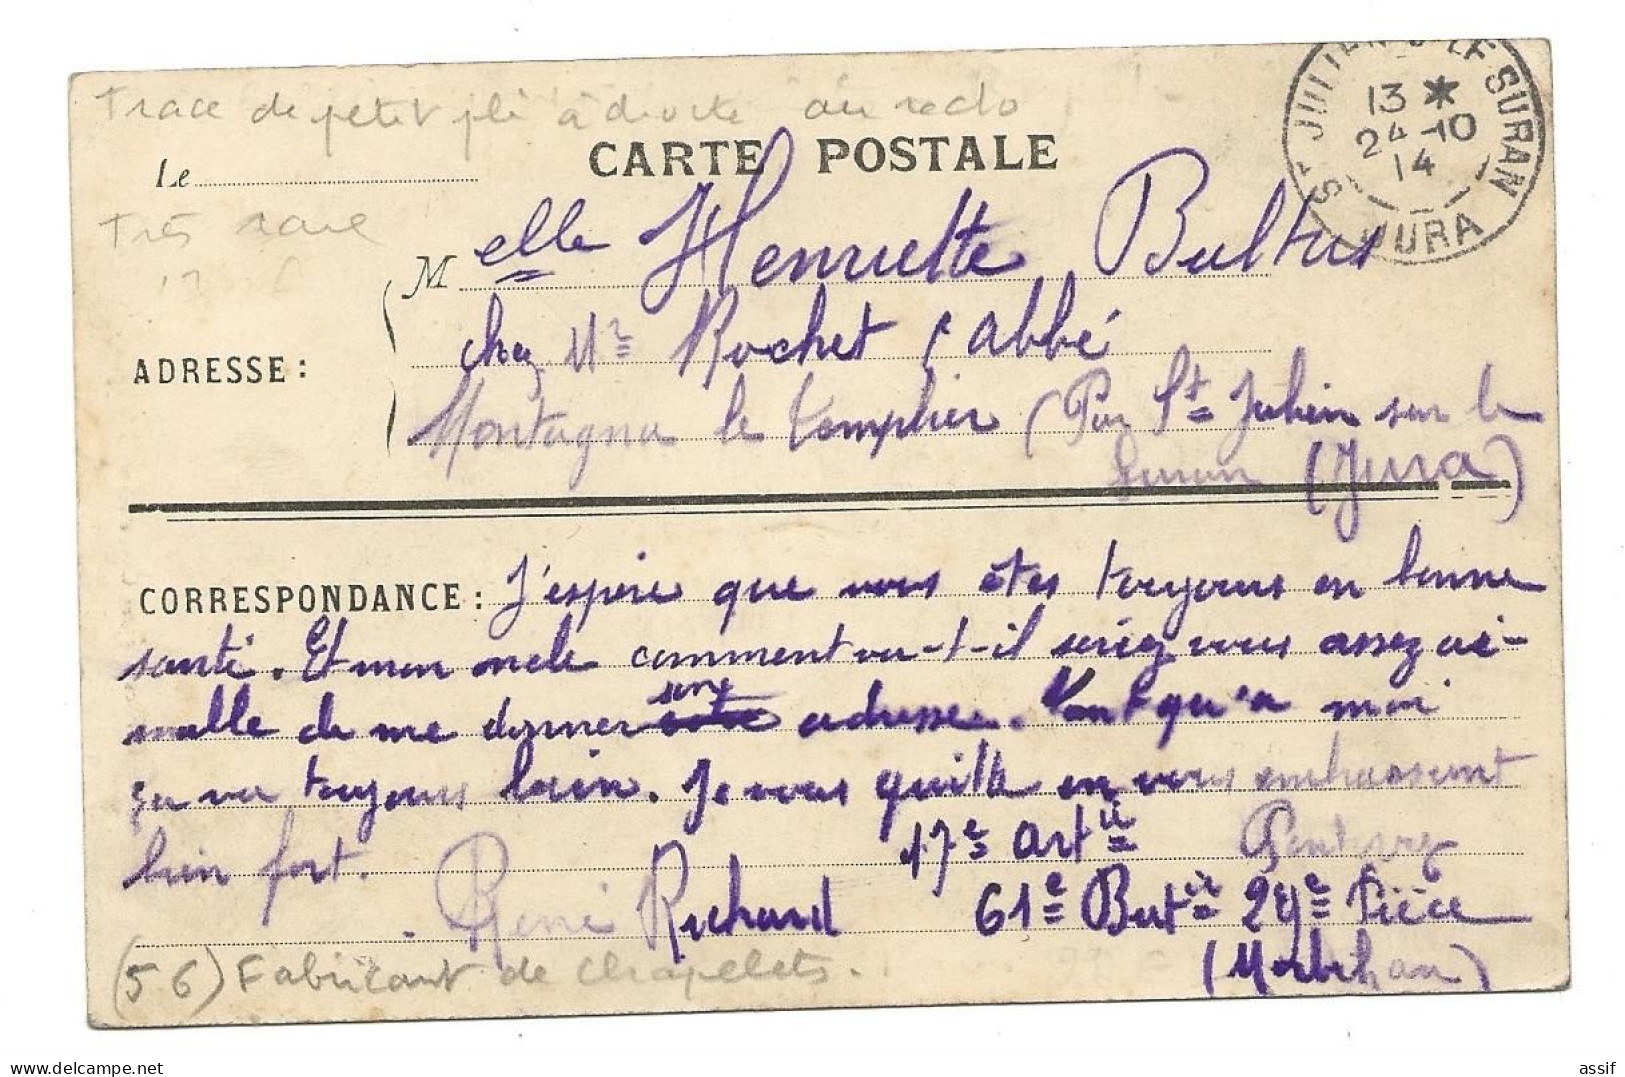 Trace de petit pli à droite au recto
CARTE POSTALE
Le
Très rare
ST JULIEN S LE SURAN
13 *
24-10
14
JURA
Melle Henriette Bultus
chez Mr Rochet l'abbé
ADRESSE :
Montagna le templier (Par St Julien sur le
Suran (Jura)
CORRESPONDANCE : J'espère que vous êtes toujours en bonne
santé. Et mon oncle comment va-t-il seriez vous assez ai-
malle de me donner sone adresse. Vant qu'a moi
ça va toujours bien. Je vous quitte en vous embrassant
bien fort.
17e artie Penthievre
René Richard 61e Batrie 29e Pièce
(Morbihan)
(56) Fabricant de chapelets.
delcampe.net
assif